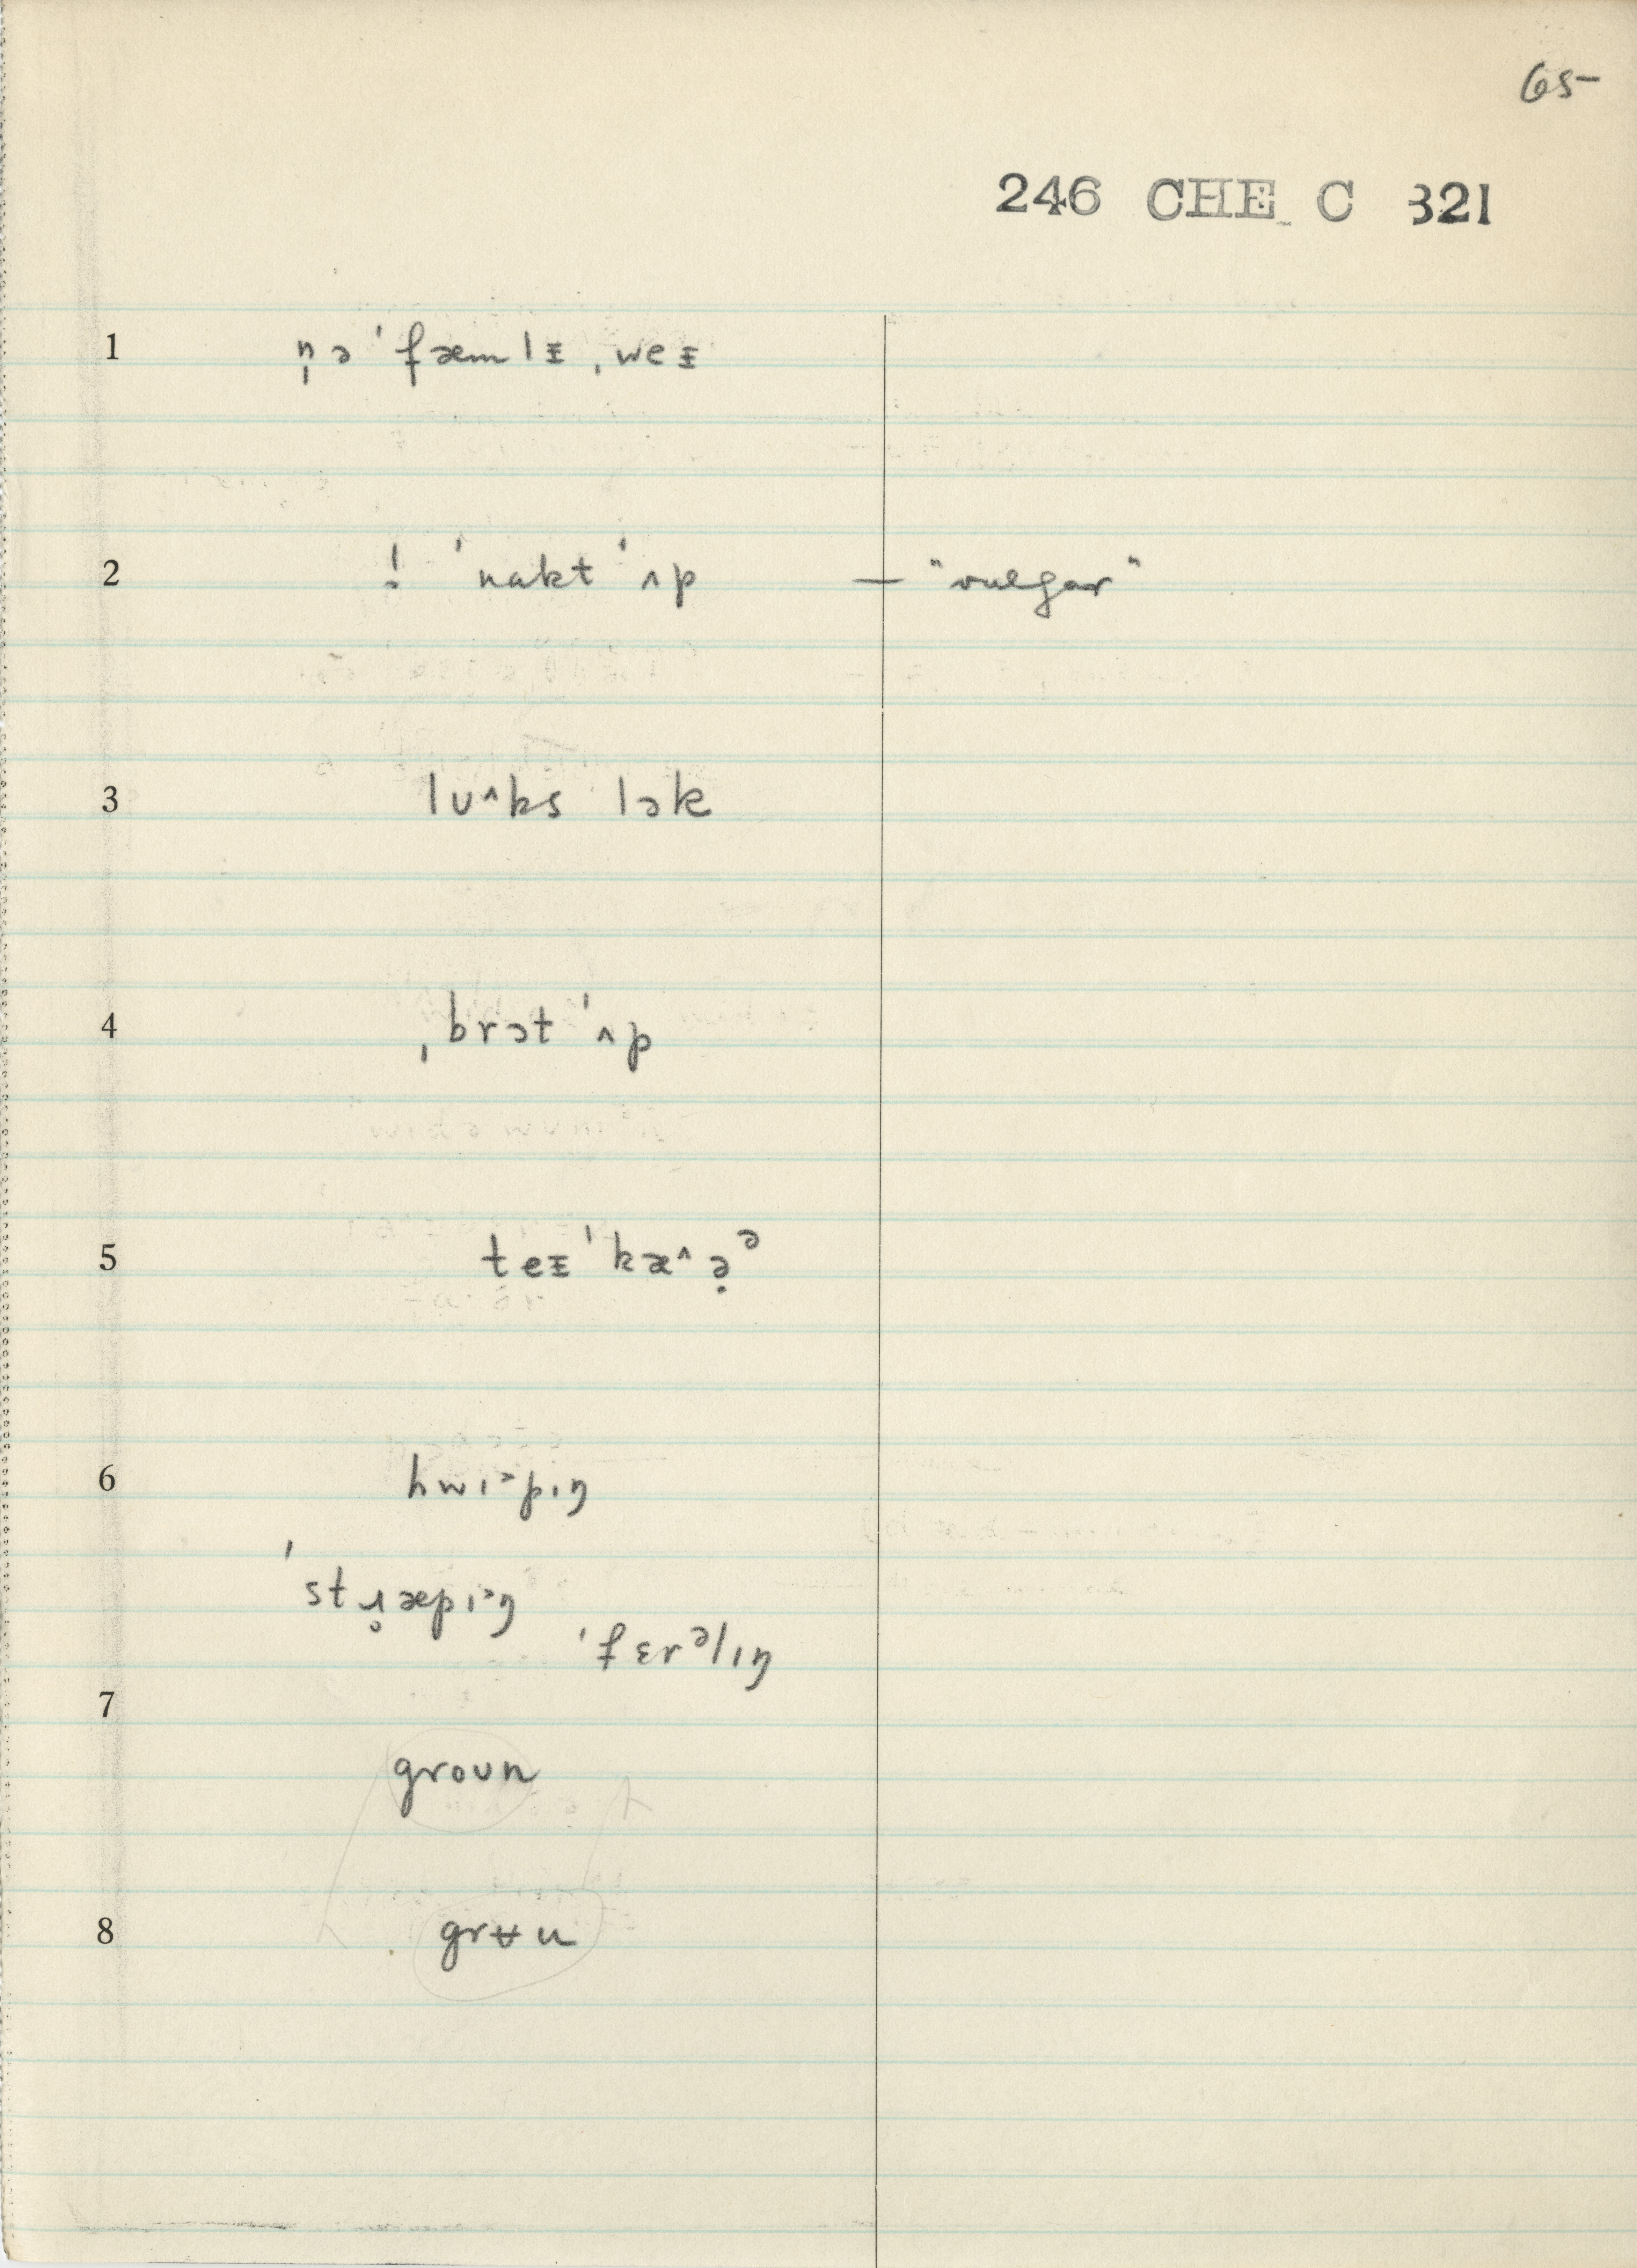 65
246 CHE C 321
1 n̩ə ˈfæmlɪ̵ ˌweɪ̵
2 ! ˈnakt ˈʌp — "vulgar"
3 lʊ^ks lək
4 ˌbrɔt ˈʌp
5 teɪ̵ ˈkæ^ə̣ᵊ
6 hwɪᵊpɪŋ
ˈstɹ̥æpɪᵊŋ
ˈfɛrᵊlɪŋ
7
groʊn
8 grʉn